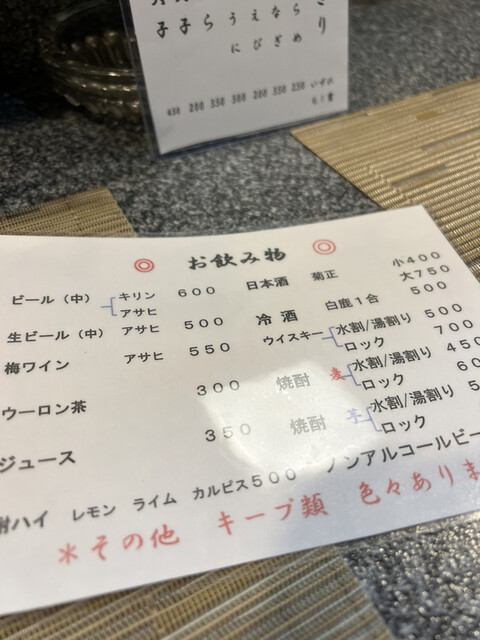 子 子 ら う に え び な ぎ ら め
450 200 350 500 200 350 250
◎ お飲み物 ◎
ビール（中） キリン 600
アサヒ
生ビール（中） アサヒ 500
梅ワイン アサヒ 550
ウーロン茶 300
ジュース 350
酎ハイ レモン ライム カルピス500
日本酒 菊正 小400
大750
冷酒 白鹿1合 500
ウイスキー 水割/湯割り 500
ロック 700
焼酎 麦 水割/湯割り 450
ロック
焼酎 芋 水割/湯割り
ロック
ノンアルコールビー
＊その他 キープ類 色々ありま